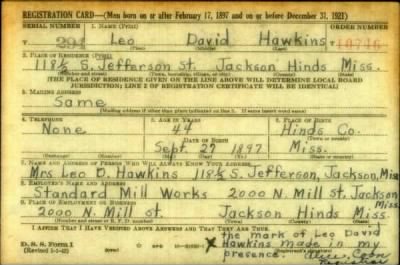 REGISTRATION CARD—(Men born on or after February 17, 1897 and on or before December 31, 1921)
SERIAL NUMBER 1. NAME (Print) ORDER NUMBER
Leo David Hawkins 10716
(First) (Middle) (Last)
2. PLACE OF RESIDENCE (Print)
118½ S. Jefferson St. Jackson Hinds Miss.
(Number and street) (Town, township, village, or city) (County) (State)
[THE PLACE OF RESIDENCE GIVEN ON THE LINE ABOVE WILL DETERMINE LOCAL BOARD
JURISDICTION; LINE 2 OF REGISTRATION CERTIFICATE WILL BE IDENTICAL]
3. MAILING ADDRESS
Same
[Mailing address if other than place indicated on line 2. If same insert word same]
4. TELEPHONE 5. AGE IN YEARS 6. PLACE OF BIRTH
None 44 Hinds Co.
DATE OF BIRTH (Town or county)
Sept. 27 1897 Miss.
(Mo.) (Day) (Yr.) (State or country)
7. NAME AND ADDRESS OF PERSON WHO WILL ALWAYS KNOW YOUR ADDRESS
Mrs Leo D. Hawkins 118½ S. Jefferson, Jackson, Miss
8. EMPLOYER'S NAME AND ADDRESS
Standard Mill Works 2000 N. Mill St. Jackson
9. PLACE OF EMPLOYMENT OR BUSINESS Miss.
2000 N. Mill St. Jackson Hinds Miss.
(Number and street or R. F. D. number) (Town) (County) (State)
I AFFIRM THAT I HAVE VERIFIED ABOVE ANSWERS AND THAT THEY ARE TRUE.
D. S. S. Form 1
(Revised
X the mark of Leo David
Hawkins made in my
presence.